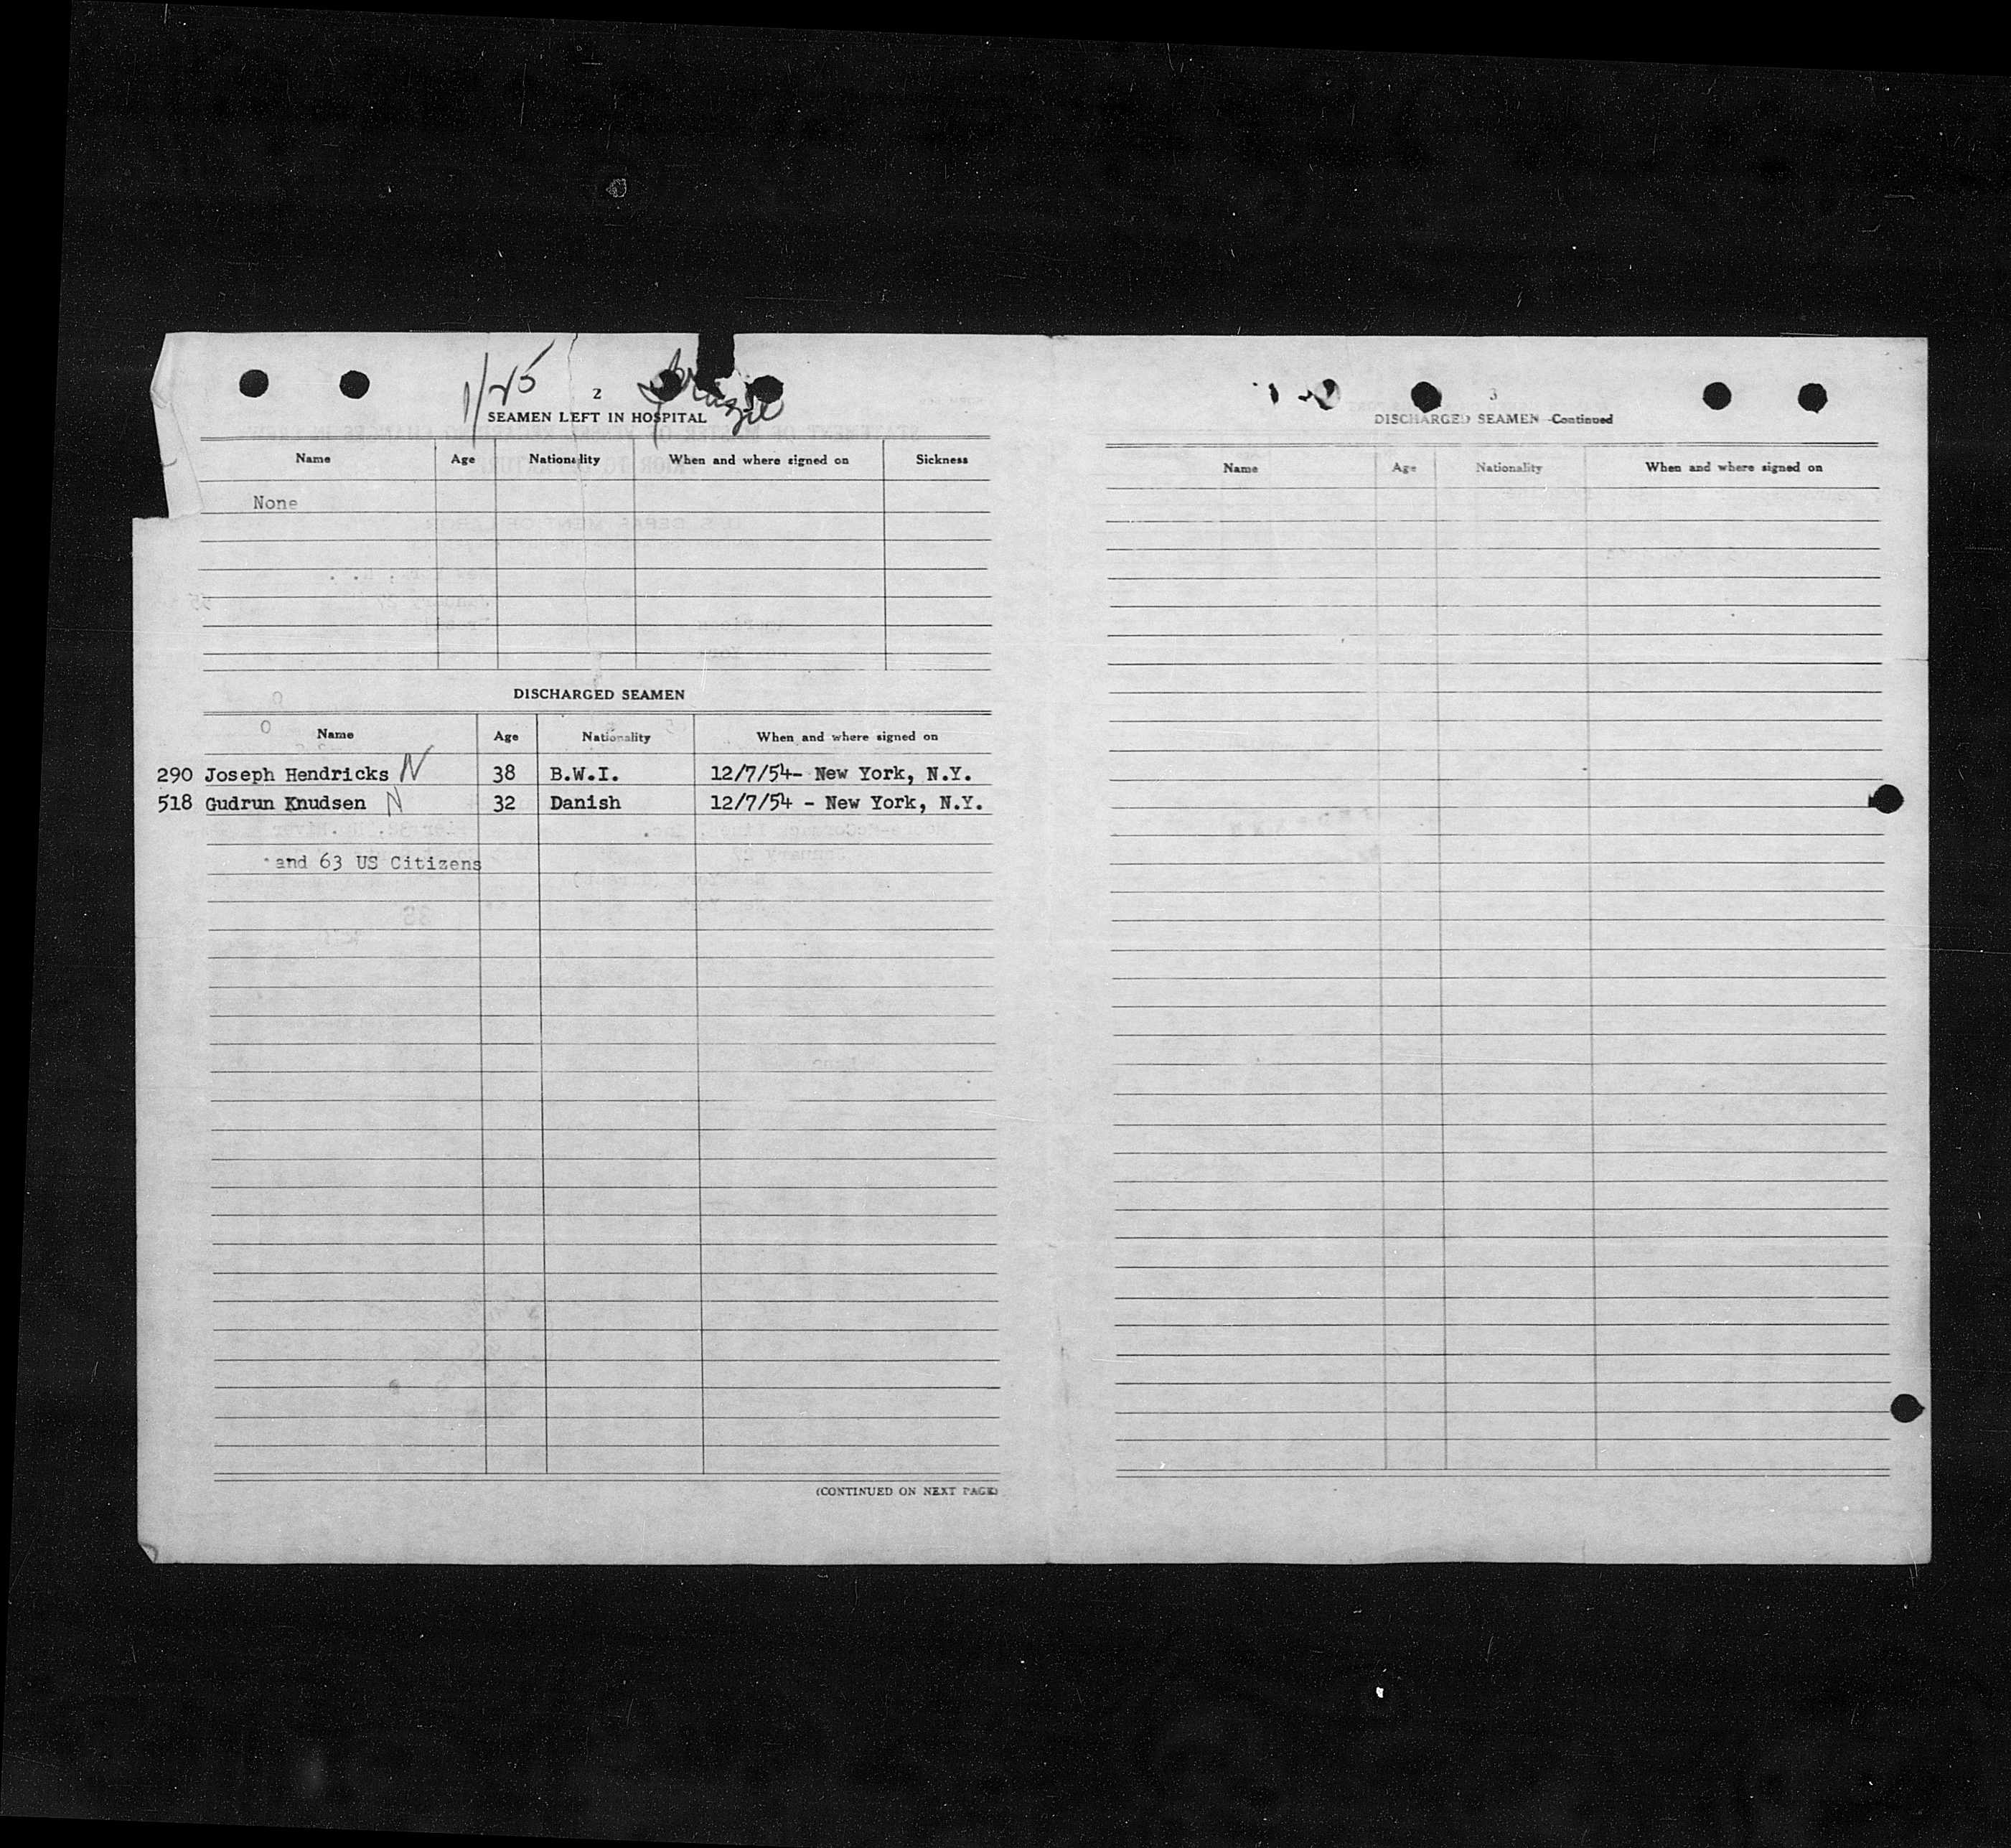 1/25
2
SEAMEN LEFT IN HOSPITAL
Name Age Nationality When and where signed on Sickness
None
DISCHARGED SEAMEN
Name Age Nationality When and where signed on
290 Joseph Hendricks N 38 B.W.I. 12/7/54- New York, N.Y.
518 Gudrun Knudsen N 32 Danish 12/7/54 - New York, N.Y.
and 63 US Citizens
(CONTINUED ON NEXT PAGE)
3
DISCHARGED SEAMEN -Continued
Name Age Nationality When and where signed on